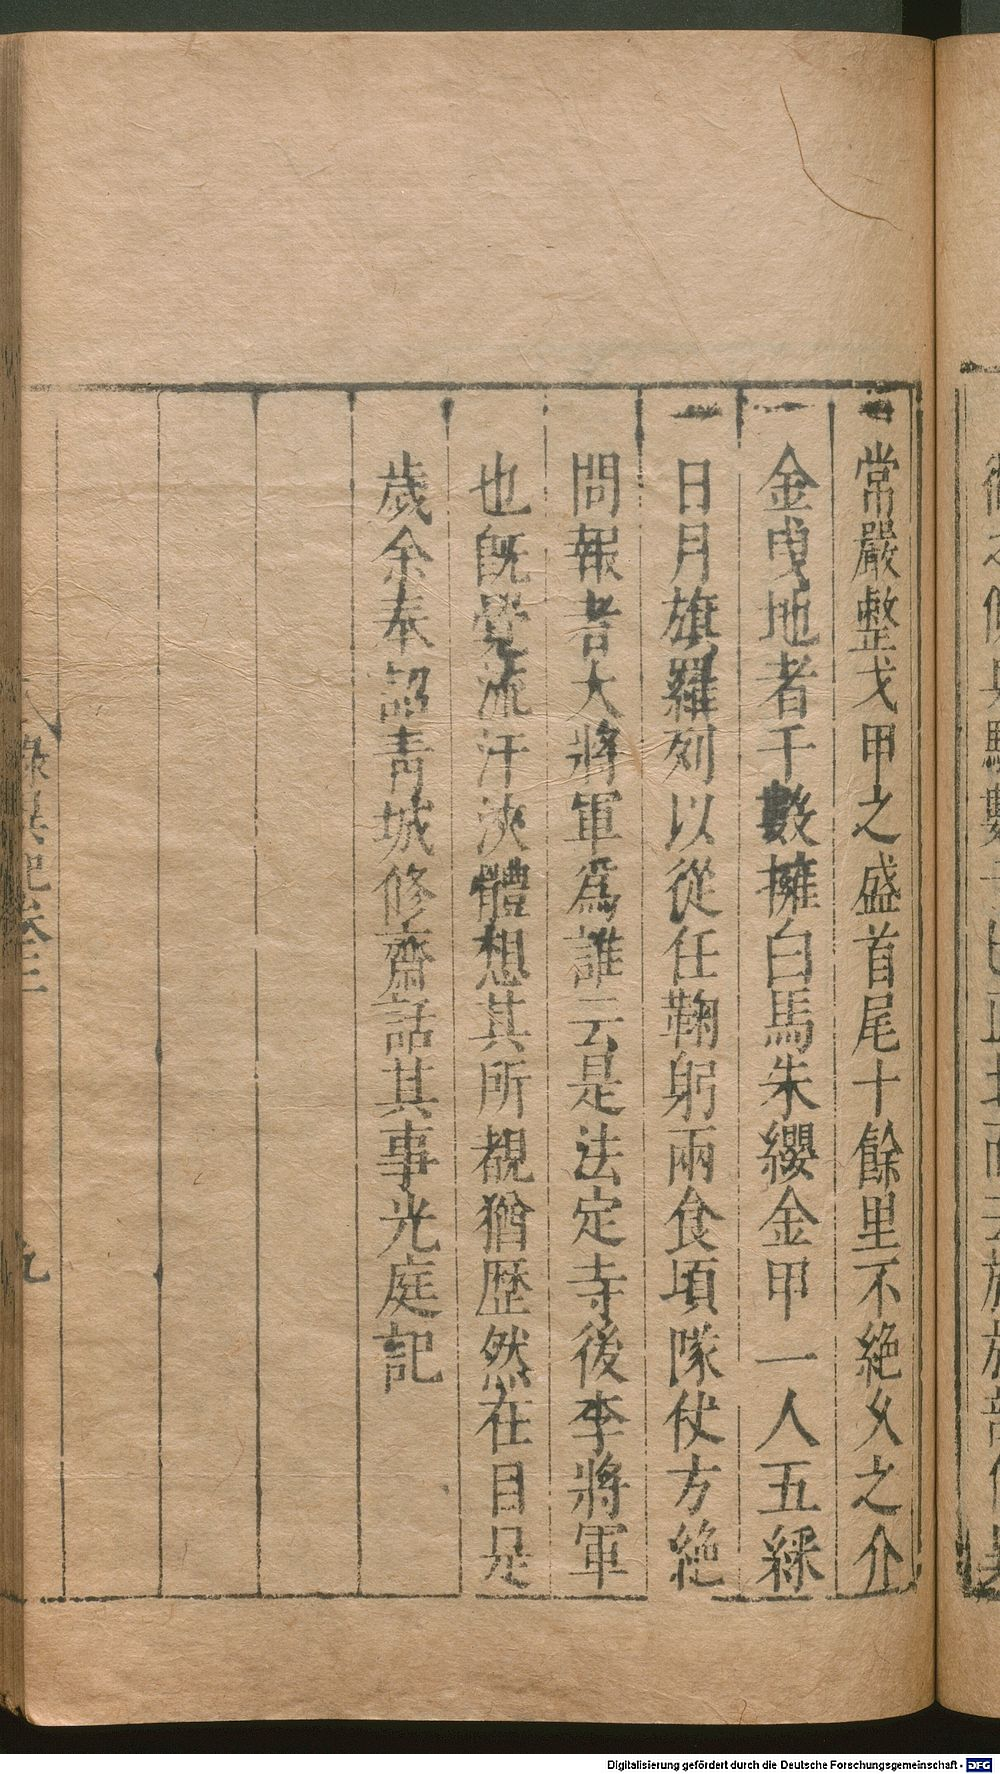 常嚴整戈甲之盛首尾十餘里不絶久之介
金曳地者千數擁白馬朱纓金甲一人五綵
日月旗羅列以從任鞠躬兩食頃隊仗方絶
問報者大將軍爲誰云是法定寺後李將軍
也旣覺流汗浹體想其所覩猶歷然在目是
歲余奉詔青城修齋話其事光庭記
錄異記卷三
九
Digitalisierung gefördert durch die Deutsche Forschungsgemeinschaft - DFG